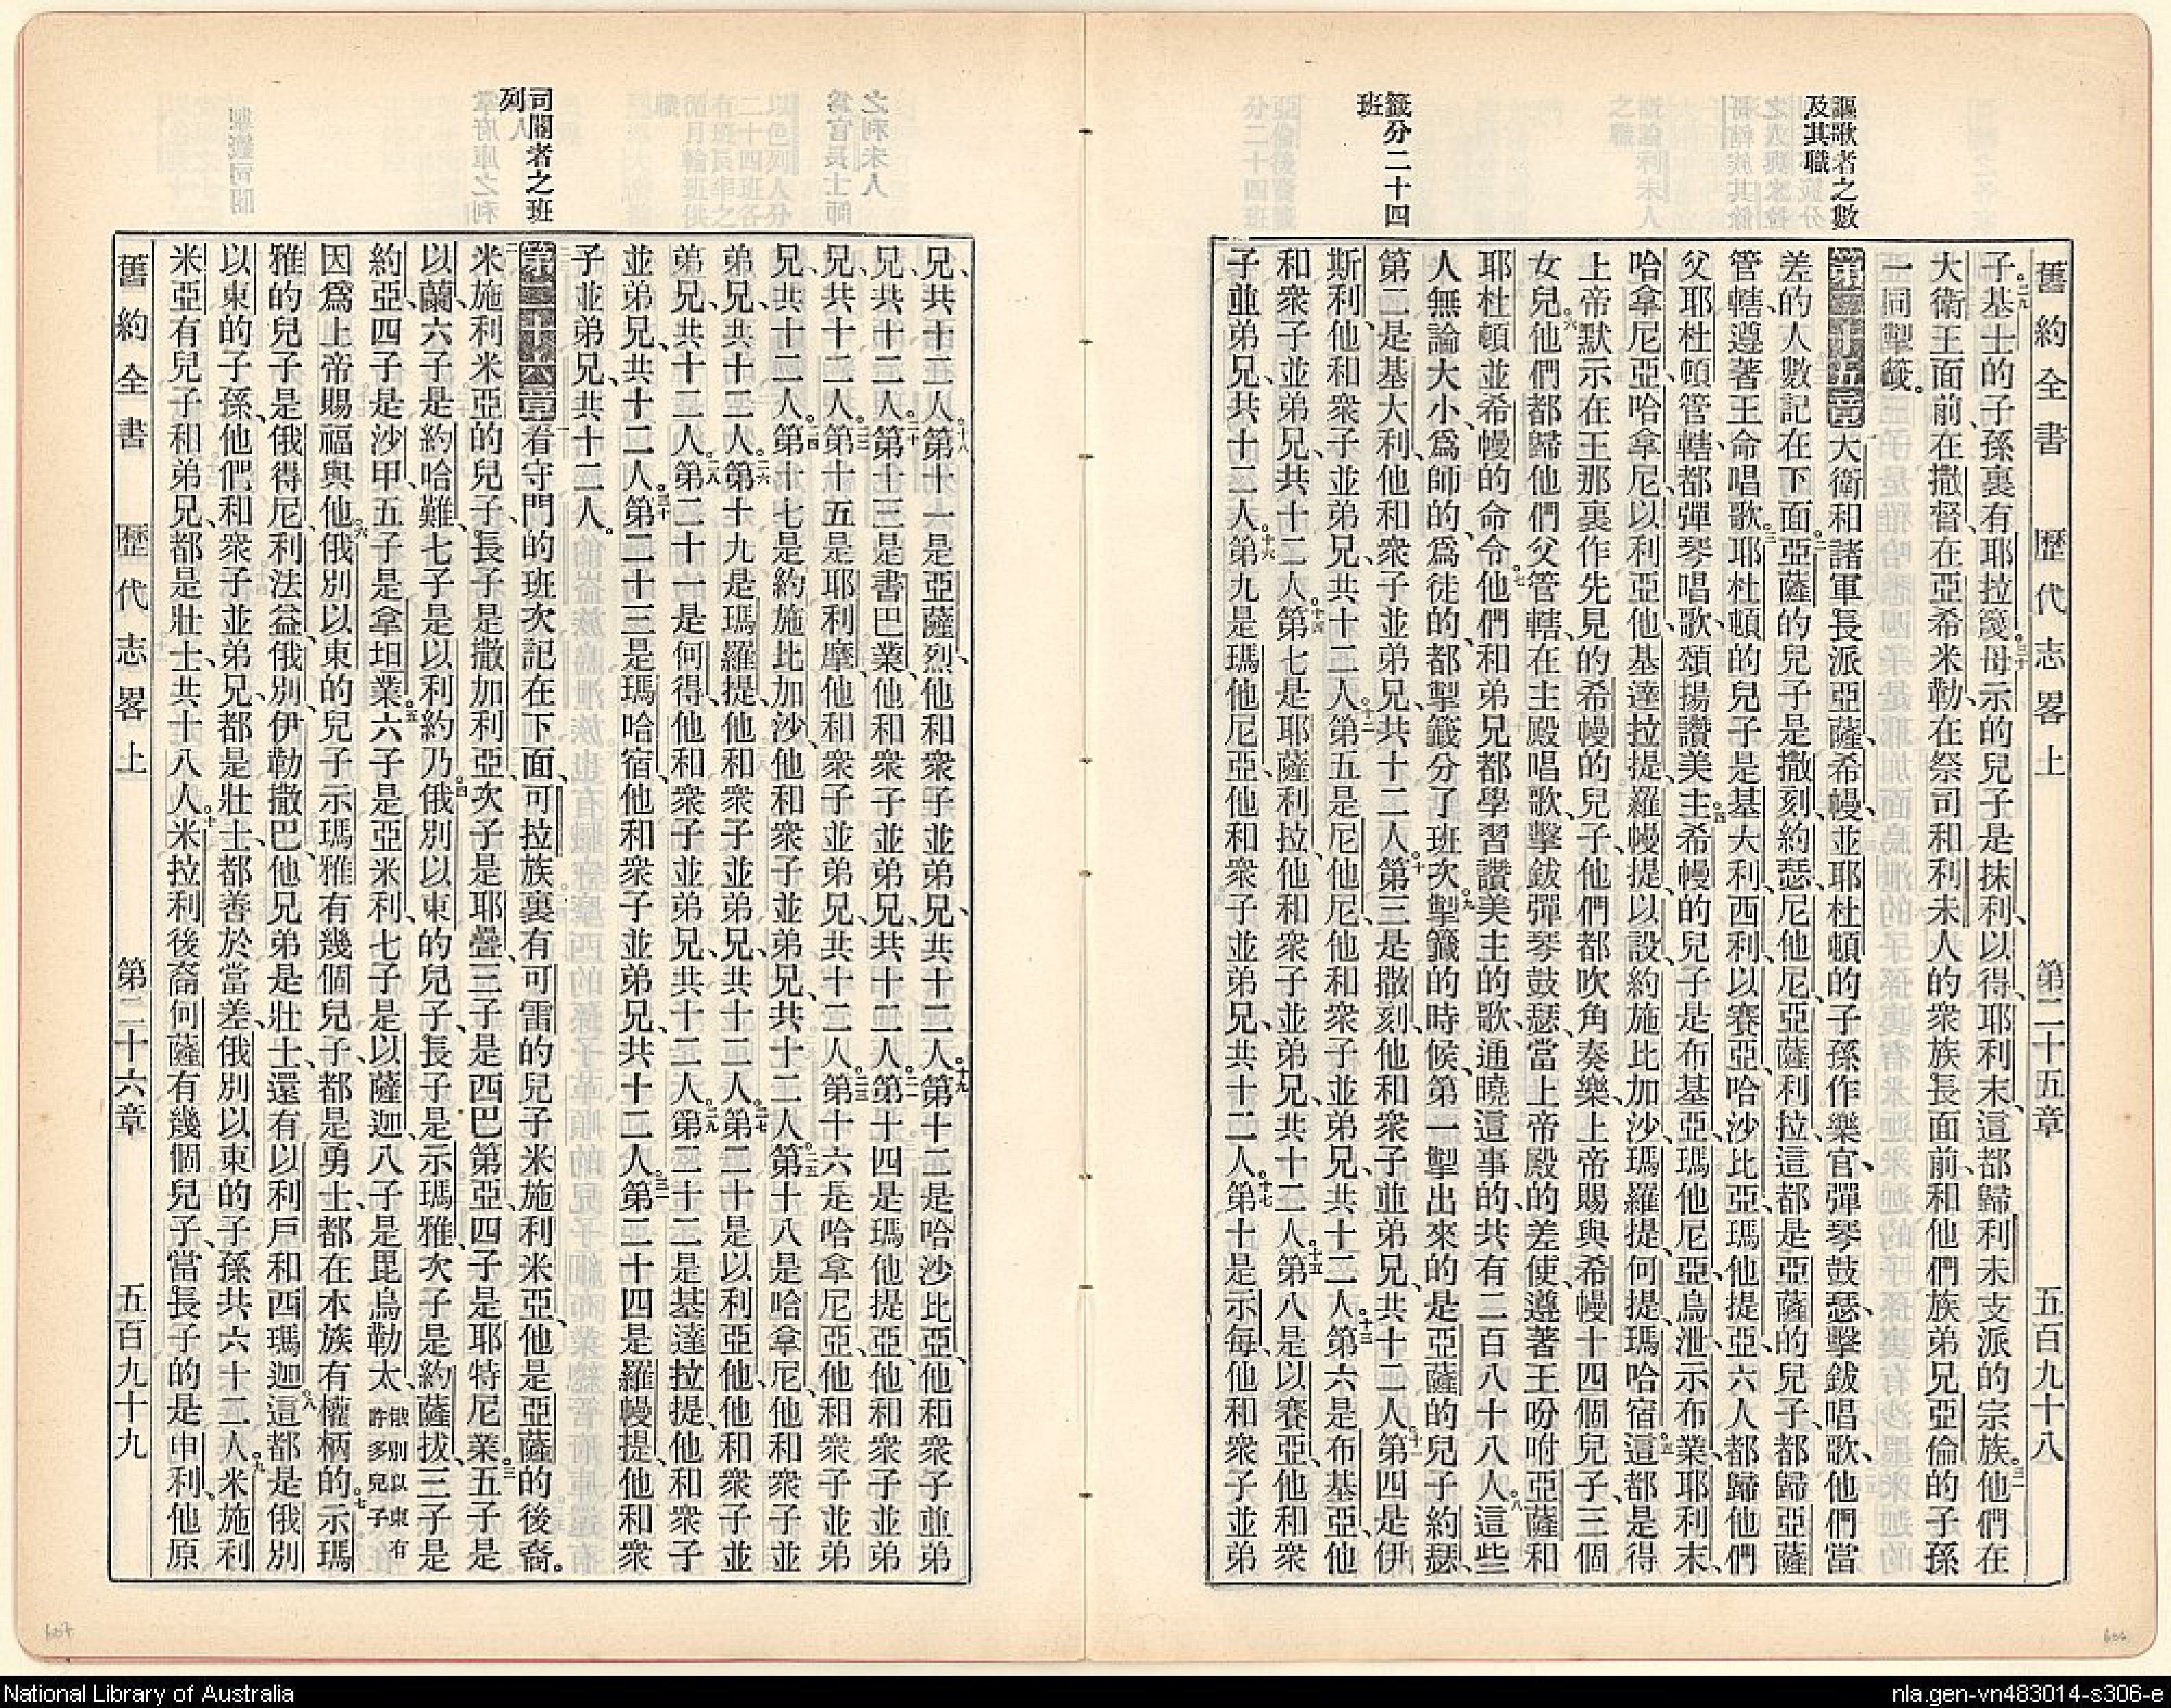 舊約全書 歷代志畧上 第二十五章 五百九十八
謳歌者之數
及其職
籤分二十四
班
子基士的子孫裏有耶拉篾母示的兒子是抹利、以得、耶利末、這都歸利未支派的宗族他們在
大衛王面前、在撒督、在亞希米勒、在祭司和利未人的衆族長面前、和他們族弟兄亞倫的子孫
一同掣籤。
第二十五章大衛和諸軍長派亞薩、希幔、並耶杜頓的子孫作樂官、彈琴鼓瑟、擊鈸唱歌、他們當
差的人數記在下面亞薩的兒子是撒刻、約瑟、尼他尼亞、薩利拉、這都是亞薩的兒子、都歸亞薩
管轄、遵著王命唱歌耶杜頓的兒子是基大利、西利、以賽亞、哈沙比亞、瑪他提亞、六人都歸他們
父耶杜頓管轄、都彈琴唱歌、頌揚讚美主希幔的兒子是布基亞、瑪他尼亞、烏泄、示布業、耶利末、
哈拿尼亞、哈拿尼、以利亞他、基達拉提、羅幔提以設、約施比加沙、瑪羅提、何提、瑪哈宿這都是得
上帝默示在王那裏作先見的希幔的兒子、他們都吹角奏樂、上帝賜與希幔十四個兒子、三個
女兒他們都歸他們父管轄、在主殿唱歌、擊鈸彈琴鼓瑟、當上帝殿的差使、遵著王吩咐亞薩和
耶杜頓並希幔的命令他們和弟兄都學習讚美主的歌、通曉這事的、共有二百八十八人這些
人無論大小、爲師的、爲徒的、都掣籤分了班次掣籤的時候、第一掣出來的是亞薩的兒子約瑟、
第二是基大利、他和衆子並弟兄、共十二人第三是撒刻、他和衆子並弟兄、共十二人第四是伊
斯利、他和衆子並弟兄、共十二人第五是尼他尼、他和衆子並弟兄、共十二人第六是布基亞、他
和衆子並弟兄、共十二人第七是耶薩利拉、他和衆子並弟兄、共十二人第八是以賽亞、他和衆
子並弟兄、共十二人第九是瑪他尼亞、他和衆子並弟兄、共十二人第十是示每、他和衆子並弟
之班
司閽者之班
列
兄、共十二人第十一是亞薩烈、他和衆子並弟兄、共十二人第十二是哈沙比亞、他和衆子並弟
兄、共十二人第十三是書巴業、他和衆子並弟兄、共十二人第十四是瑪他提亞、他和衆子並弟
兄、共十二人第十五是耶利摩、他和衆子並弟兄、共十二人第十六是哈拿尼亞、他和衆子並弟
兄、共十二人第十七是約施比加沙、他和衆子並弟兄、共十二人第十八是哈拿尼、他和衆子並
弟兄、共十二人第十九是瑪羅提、他和衆子並弟兄、共十二人第二十是以利亞他、他和衆子並
弟兄、共十二人第二十一是何得、他和衆子並弟兄、共十二人第二十二是基達拉提、他和衆子
並弟兄、共十二人第二十三是瑪哈宿、他和衆子並弟兄、共十二人第二十四是羅幔提、他和衆
子並弟兄、共十二人。
第二十六章看守門的班次記在下面、可拉族裏有可雷的兒子米施利米亞、他是亞薩的後裔。
米施利米亞的兒子、長子是撒加利亞、次子是耶疊、三子是西巴第亞、四子是耶特尼業五子是
以蘭、六子是約哈難、七子是以利約乃俄別以東的兒子、長子是示瑪雅、次子是約薩拔、三子是
約亞、四子是沙甲、五子是拿坦業六子是亞米利、七子是以薩迦、八子是毘烏勒太、俄別以東有許多兒子
因爲上帝賜福與他俄別以東的兒子示瑪雅有幾個兒子、都是勇士、都在本族有權柄的示瑪
雅的兒子是俄得尼、利法益、俄別、伊勒撒巴、他兄弟是壯士、還有以利戶和西瑪迦這都是俄別
以東的子孫、他們和衆子並弟兄、都是壯士、都善於當差、俄別以東的子孫共六十二人米施利
米亞有兒子和弟兄、都是壯士、共十八人米拉利後裔何薩有幾個兒子、當長子的是申利、他原
舊約全書 歷代志畧上 第二十六章 五百九十九
National Library of Australia
nla.gen-vn483014-s306-e